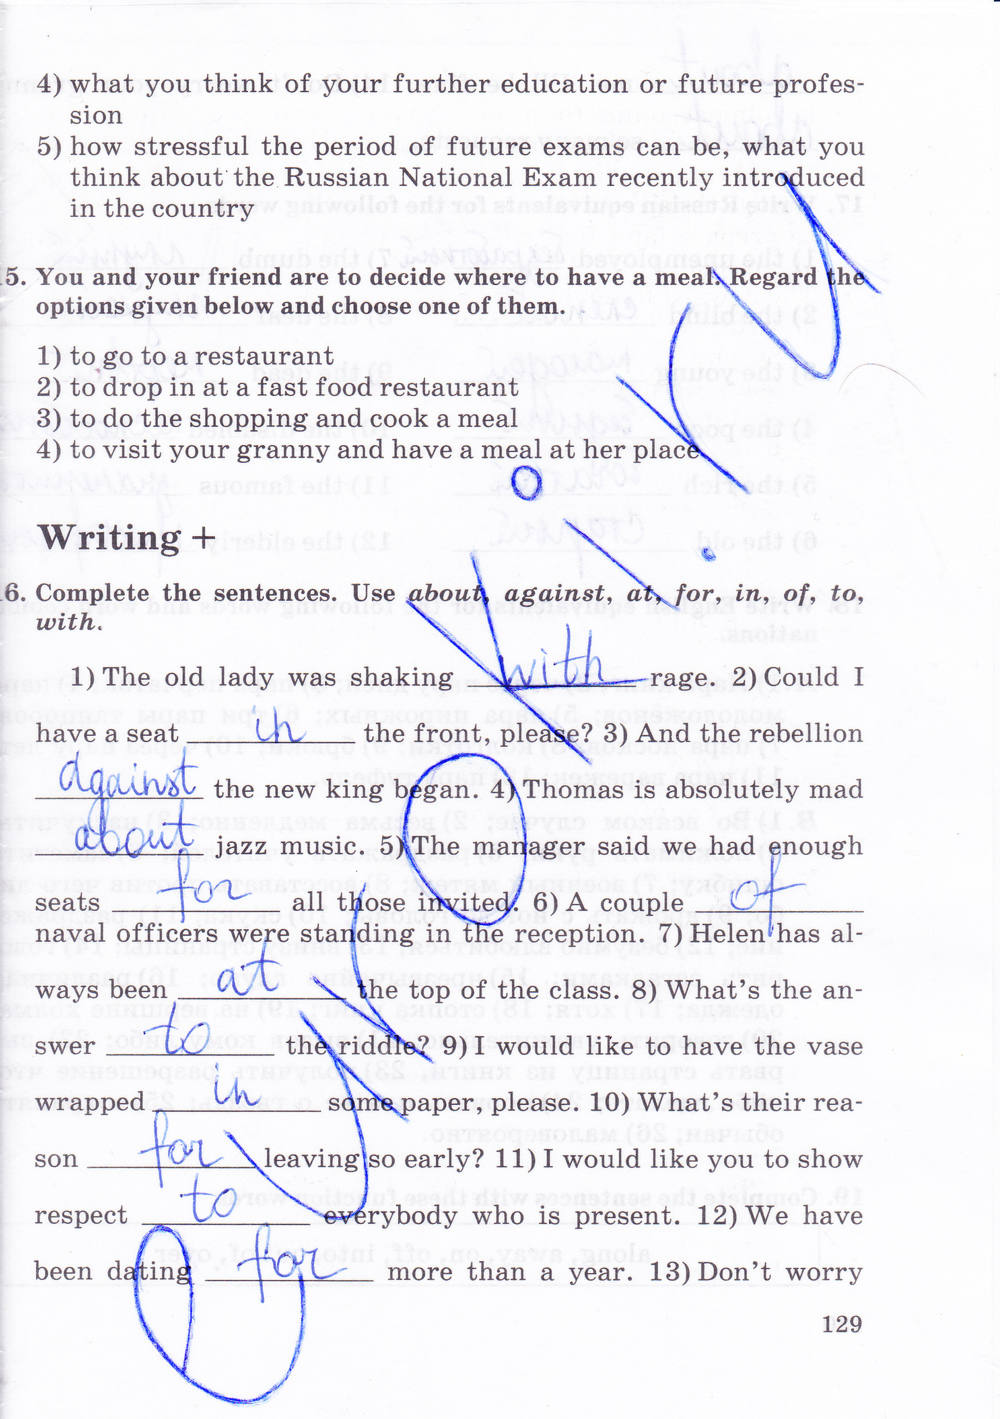 4) what you think of your further education or future profes-
sion
5) how stressful the period of future exams can be, what you
think about the Russian National Exam recently introduced
in the country
5. You and your friend are to decide where to have a meal. Regard the
options given below and choose one of them.
1) to go to a restaurant
2) to drop in at a fast food restaurant
3) to do the shopping and cook a meal
4) to visit your granny and have a meal at her place
Writing +
6. Complete the sentences. Use about, against, at, for, in, of, to,
with.
1) The old lady was shaking with rage. 2) Could I
have a seat in the front, please? 3) And the rebellion
against the new king began. 4) Thomas is absolutely mad
about jazz music. 5) The manager said we had enough
seats for all those invited. 6) A couple of
naval officers were standing in the reception. 7) Helen has al-
ways been at the top of the class. 8) What's the an-
swer to the riddle? 9) I would like to have the vase
wrapped in some paper, please. 10) What's their rea-
son for leaving so early? 11) I would like you to show
respect to everybody who is present. 12) We have
been dating for more than a year. 13) Don't worry
129